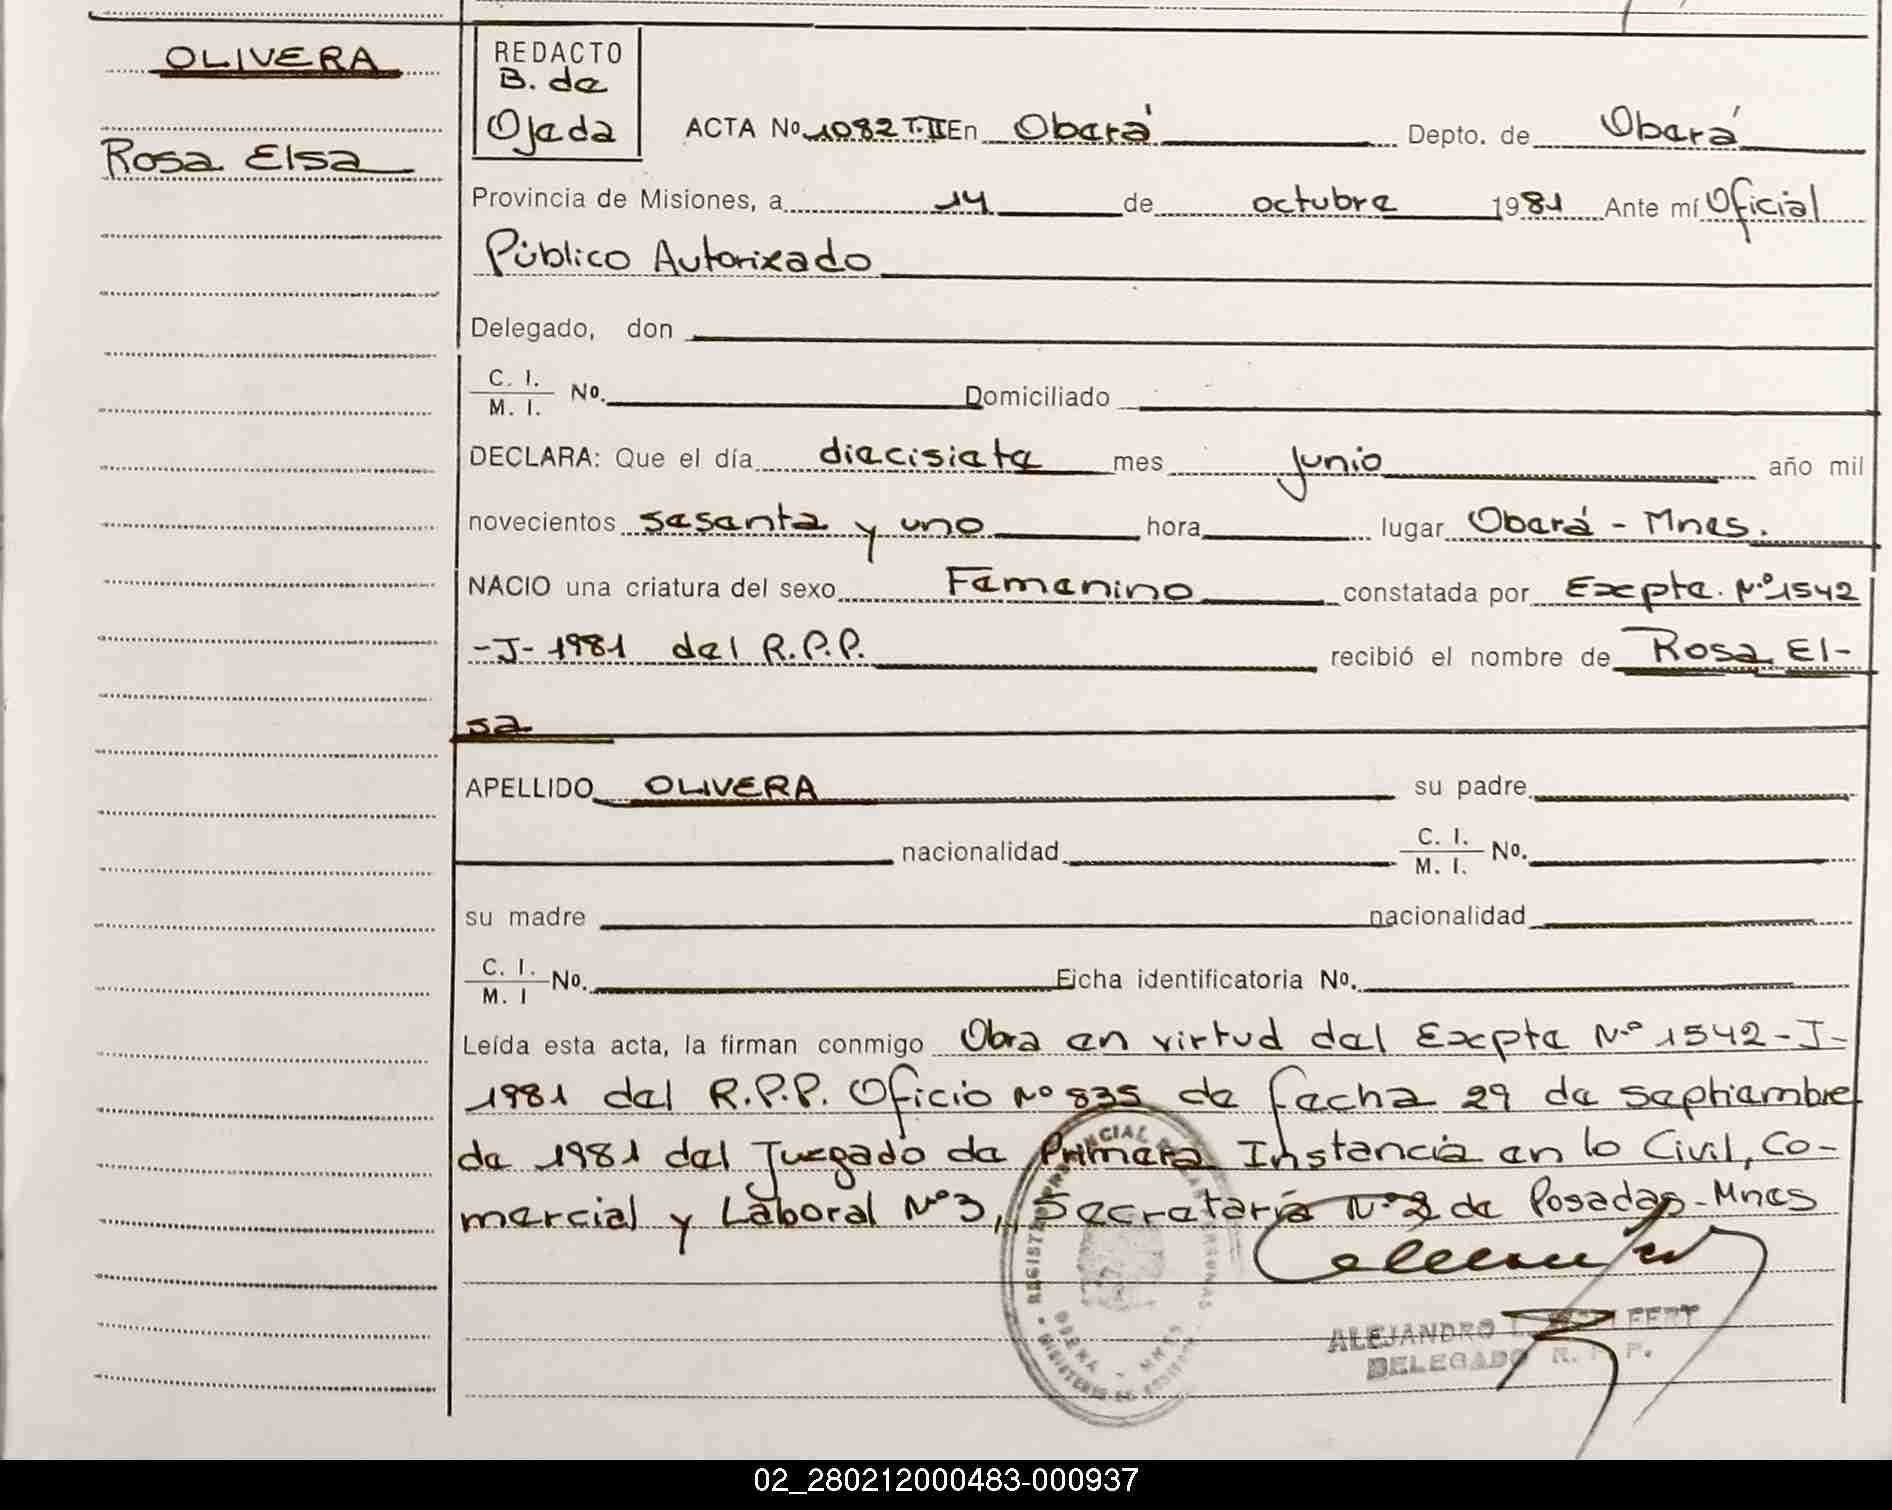 OLIVERA
Rosa Elsa
REDACTO
B. de
Ojeda
ACTA No. 1082 T.II En Oberá Depto. de Oberá
Provincia de Misiones, a 14 de octubre 1981 Ante mí Oficial
Público Autorizado
Delegado, don
C. I. / M. I. No. Domiciliado
DECLARA: Que el día diecisiete mes junio año mil
novecientos sesenta y uno hora lugar Oberá - Mnes.
NACIO una criatura del sexo Femenino constatada por Expte. Nº 1542
-J- 1981 del R.P.P. recibió el nombre de Rosa El-
sa
APELLIDO OLIVERA su padre
nacionalidad C. I. / M. I. No.
su madre nacionalidad
C. I. / M. I No. Ficha identificatoria No.
Leída esta acta, la firman conmigo Obra en virtud del Expte Nº 1542-J-
1981 del R.P.P. Oficio Nº 835 de fecha 29 de septiembre
de 1981 del Juzgado de Primera Instancia en lo Civil, Co-
mercial y Laboral Nº 3, Secretaría Nº 2 de Posadas-Mnes
ALEJANDRO
DELEGADO R. P. P.
02_280212000483-000937